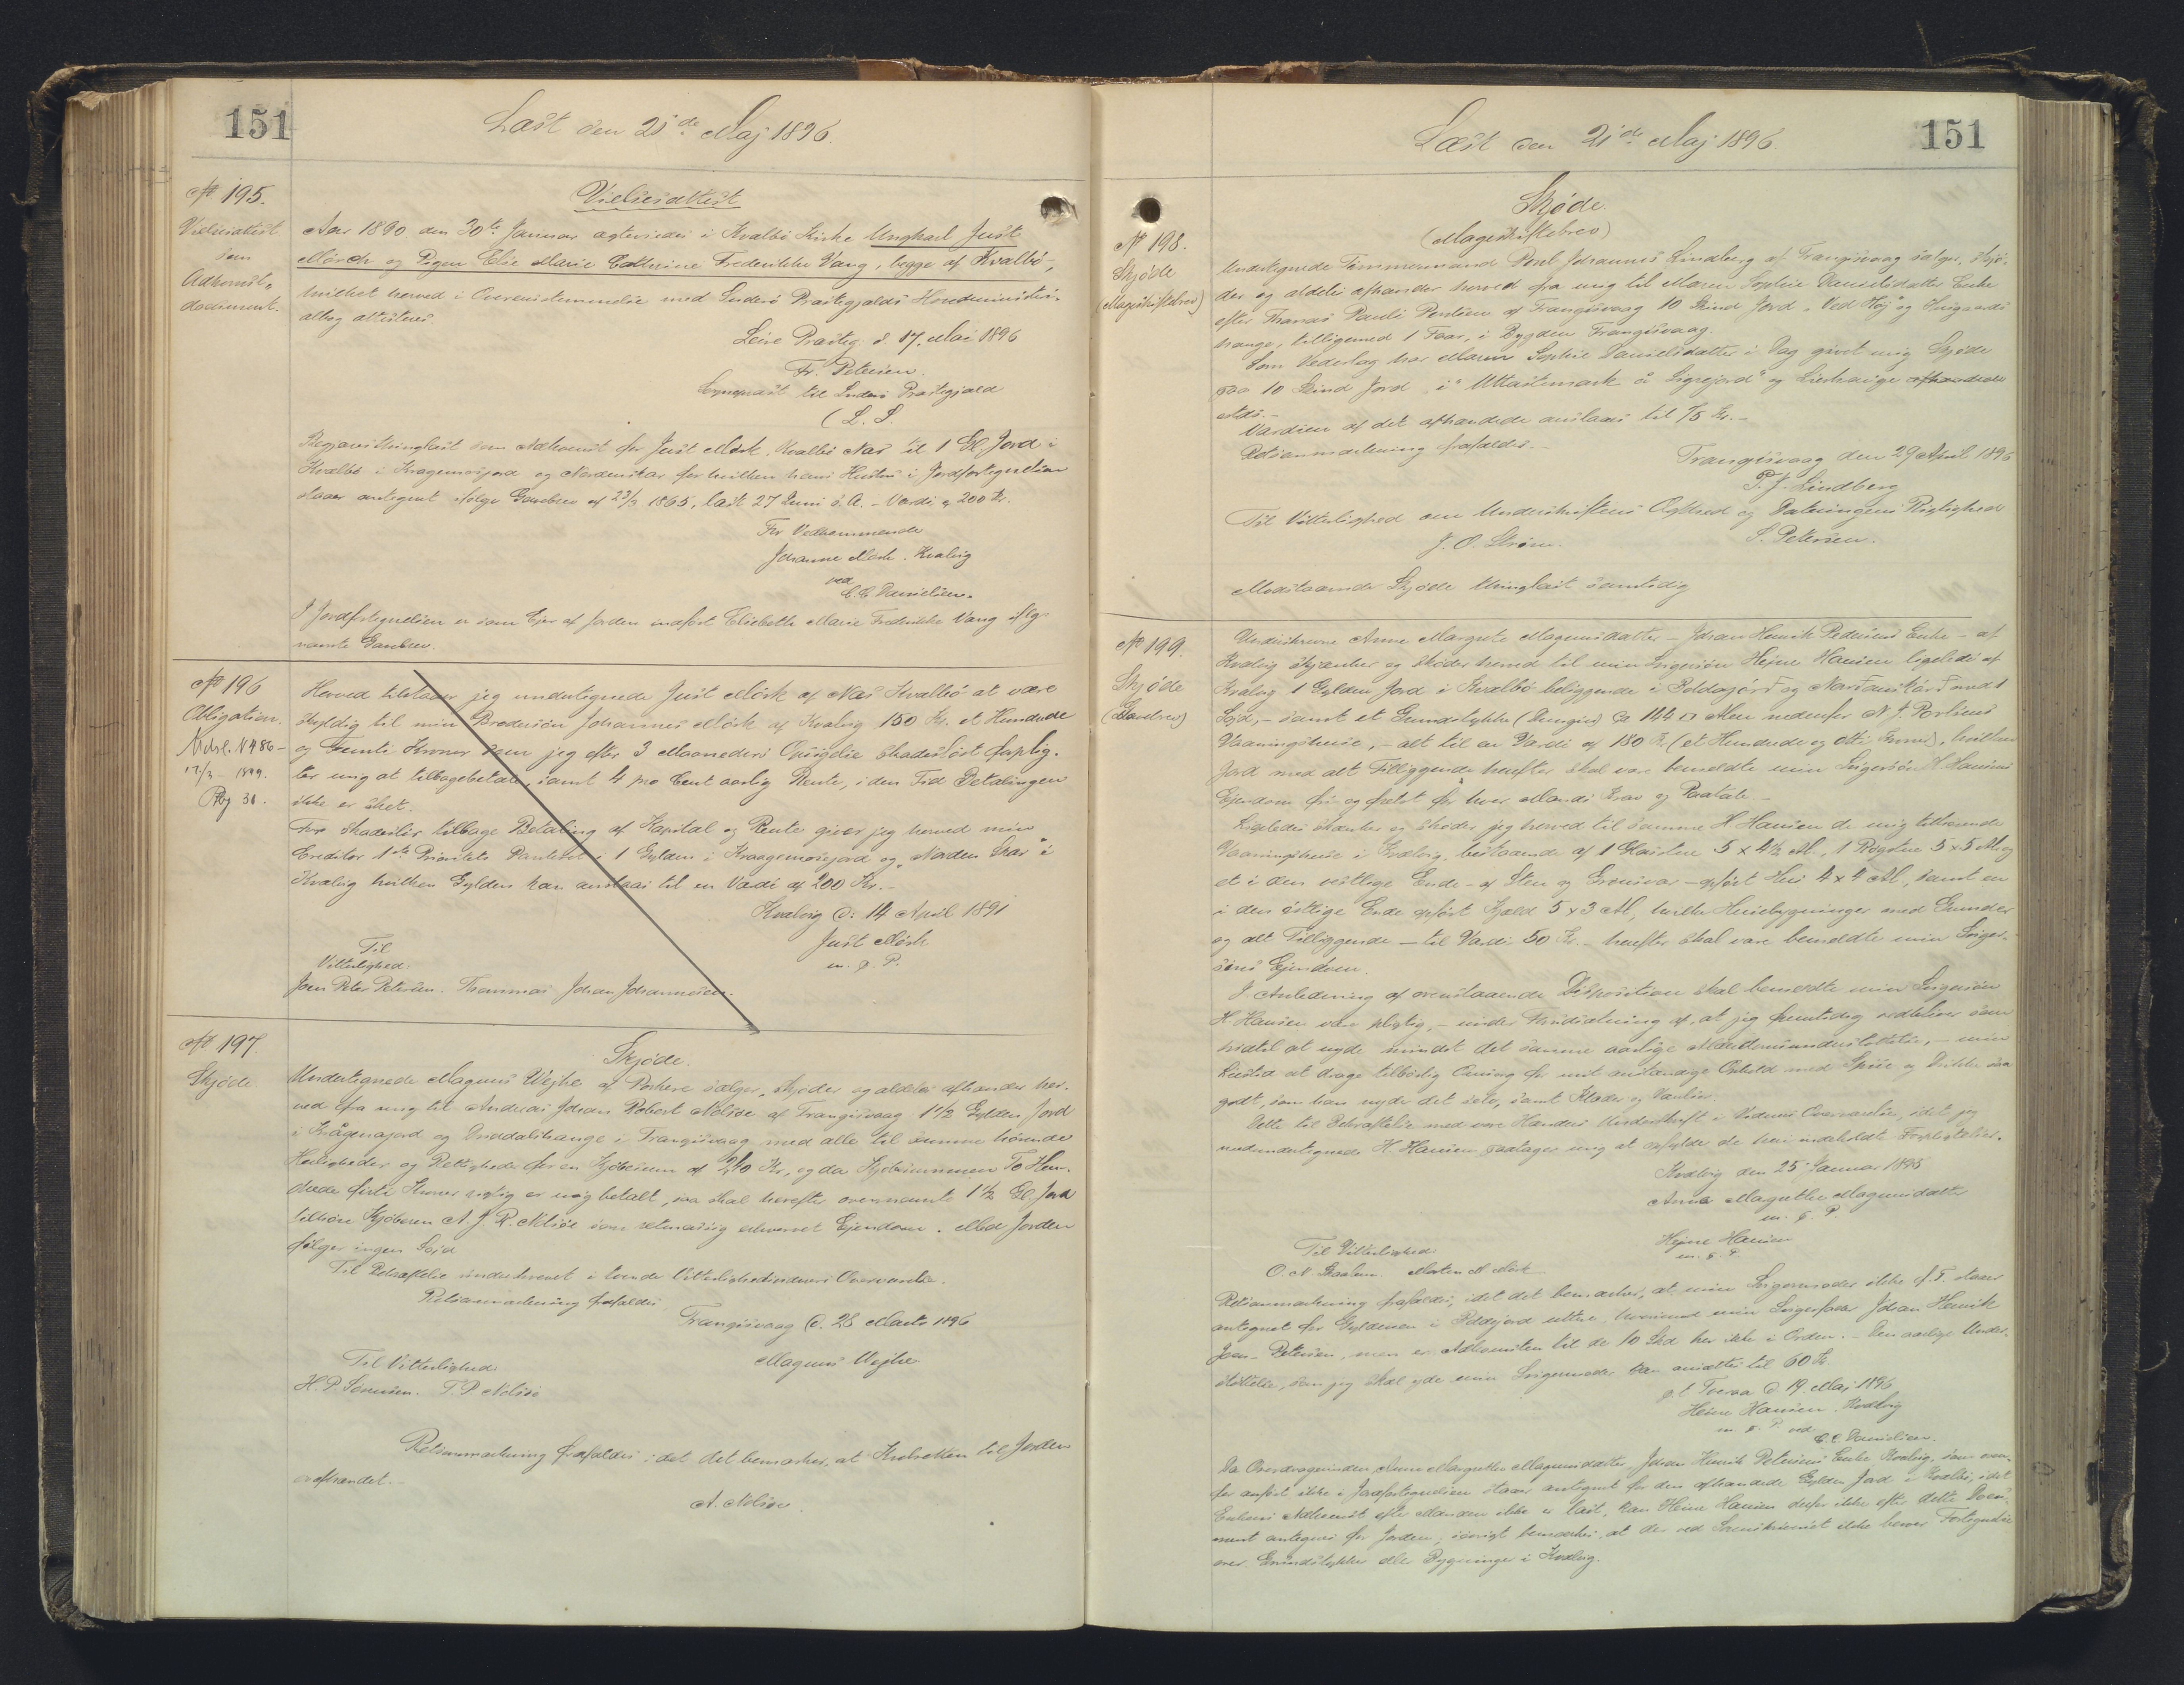 151
Læst den 21de Maj 1896.
No 195.
Vielsesattest
som
Adkomst-
document.
Vielsesattest
Aar 1890 den 30te Januar ægteviedes i Kvalbø Kirke Ungkarl Just
Mörch og Pigen Else Marie Cathrine Frederikke Vang, begge af Kvalbö,
hvilket herved i Overensstemmelse med Suderø Præstegjælds Hovedministeri-
albog attesteres.
Præsteg. d. 17. Mai 1896
Fr. Petersen.
Sognepræst til Suderø Præstegjæld
(L. S.
Begjæres thinglæst som Adkomst for Just Mörk, Kvalbö Næs til 1 Gl. Jord i
Kvalbö i Kragemosejord og Nordenskar for hvilken hans Hustru i Jordfortegnelsen
staaer antegnet ifølge Gavebrev af 23/3 1865, læst 27 Juni s. A. - Værdi 200 Kr.
For Vedkommende
Johannes Mörk. Kvalvig
ved
C. C. Danielsen.
I Jordfortegnelsen er som Ejer af Jorden indført Elisebeth Marie Frederikke Vang iflg.
nævnte Gavebrev.
No 196
Obligation.
Udsl. No 86
17/3 1899.
Pbg 31.
Herved tilstaaer jeg undertegnede Just Mörk af Næs Kvalbö at være
skyldig til min Brodersön Johannes Mörk af Kvalvig 150 Kr. et Hundrede
og Femti Kroner som jeg efter 3 Maaneders Opsigelse skadeslöst forplig-
ter mig at tilbagebetale, samt 4 pro Cent aarlig Rente, i den Tid Betalingen
ikke er sket.
For skadeslös tilbage Betaling af Kapital og Rente giver jeg herved min
Creditor 1ste Prioritets Panteret i 1 Gylden i Kraagemosejord og "Norden Skar" i
Kvalvig hvilken Gylden kan anslaaes til en Værdi af 200 Kr.-
Kvalvig d: 14 April 1891
Just Mörk
m. f. P.
Til
Vitterlighed:
Joen Peter Petersen. Thommas Johan Johannesen.
No 197.
Skjöde
Skjöde.
Undertegnede Magnus Wejhe af Porkere sælger, skjöder og aldeles afhænder her-
ved fra mig til Andreas Johan Robert Nolsöe af Trangisvaag 1 1/2 Gylden Jord
i Krågenajord og Inddalshauge i Trangisvaag med alle til samme hørende
Herligheder og Rettigheder for en Kjöbesum af 240 Kr, og da Kjöbesummen To Hun-
drede firti Kroner rigtig er mig betalt, saa skal herefter ovennævnte 1 1/2 Gl. Jord
tilhöre Kjöberen A. J. R. Nolsöe som retmæssig erhvervet Ejendom. Med Jorden
følger ingen Sojd
Til Bekræftelse underskrevet i tvende Vitterlighedsvidners Overværelse.
Retsanmærkning frafaldes,
Trangisvaag d. 28 Marts 1896
Magnus Wejhe.
Til Vitterlighed:
H. P. Sörensen. T. P. Nolsöe
Retsanmærkning frafaldes idet det bemærkes, at Husretten til Jorden
er afhændet.-
A. Nolsøe.
151
Læst den 21de Maj 1896.
No 198.
Skjøde
(Mageskiftebrev)
Skjøde.
(Mageskiftebrev)
Undertegnede Tømmermand Poul Johannes Lindberg af Trangisvaag sælger, skjø-
der og aldeles afhænder herved fra mig til Maren Sophie Danielsdatter Enke
efter Thomas Pauli Poulsen af Trangisvaag 10 Skind Jord "Ved Høj" og
hauge, tilligemed 1 Faar, i Bygden Trangisvaag.
Som Vederlag har Maren Sophie Danielsdatter i Dag givet mig Skjøde
paa 10 Skind Jord i og
estds.-
Værdien af det afhændede anslaaes til 75 Kr.-
Retsanmærkning frafaldes.-
Trangisvaag den 29 April 1896
P. J. Lindberg
Til Vitterlighed om Underskriftens Ægthed og Dateringens Rigtighed
J. O. Strøm. S. Petersen.
Modstaaende Skjøde thinglæst samtidig
No 199.
Skjöde
(Gavebrev)
Underskrevne Anne Margrete Magnusdatter - Johan Henrik Pedersens Enke - af
Kvalvig skjænker og skøder herved til min Svigersön Hejne Hansen ligeledes af
Kvalvig 1 Gylden Jord i Kvalbö beliggende i og med 1
Sojd, - samt et Grundstykke Ca 144 □ Alen nedenfor N. J. Poulsens
Vaaningshuse, - alt til en Værdi af 180 Kr (et Hundrede og otti Kroner), hvilken
Jord med alt Tilliggende herefter skal være bemeldte min Svigersön H. Hansens
Ejendom fri og frelst for hver Mands Krav og Paatale.-
Ligeledes skænker og skøder jeg herved til samme H. Hansen de mig tilhørende
Vaaningshuse i Kvalvig, bestaaende af 1 Glasstue 5 x 4 1/2 Al., 1 Rögstue 5 x 5 Al. og
et i den vestlige Ende - af Sten og Grönsvær - opfört Hus 4 x 4 Al., samt en
i den östlige Ende opfört Kjald 5 x 3 Al, hvilke Huusbygninger med Grunder
og alt Tilliggende - til Værdi 50 Kr. - herefter skal være bemeldte min Sviger-
söns Ejendom.
I Anledning af ovenstaaende Disposition skal bemeldte min Svigersön
H. Hansen være pligtig, - under Forudsætning af, at jeg fremtidig vedbliver som
hidtil at nyde mindst det samme aarlige -, min
Livstid at drage tilbörlig Omsorg for mit anstændige Ophold med Spise og Drikke saa
godt, som han nyder det selv, samt Klæder og Vanlin.
Dette til Bekræftelse med vore Hænders Underskrift i Vidners Overværelse, idet jeg
medundertegnede H. Hansen paatager mig at opfylde de heri indeholdte Forpligtelser.
Kvalvig den 25 Januar 1895
Anna Magrethe Magnusdatter
m. f. P.
Hejne Hansen
m. f. P.
Til Vitterlighed:
Morten M. Mörk
Retsanmærkning frafaldes, idet det bemærkes, at min Svigermoder ikke f. T. staaer
antegnet for Gyldenen i hvorimod min Svigerfader Johan Henrik
Joen- Petersen, men er Adkomsten til de 10 Skd her ikke i Orden. - Den aarlige Under-
støttelse, som jeg skal yde min Svigermoder kan ansættes til 60 Kr.
p. t. Tveraa d. 19. Maj 1896
Heine Hansen. Kvalvig
m. f. P. ved
C. C. Danielsen.
Da Overdragerinden Anne Margrethe Magnusdatter, Johan Henrik Petersens Enke Kvalvig, som oven-
for anført ikke i Jordfortegnelsen staaer antegnet for den afhændede Gylden Jord i Kvalbø, idet
Enkens Adkomst efter Manden ikke er læst, kan Heine Hansen derfor ikke efter dette Docu-
ment antegnes for Jorden; iøvrigt bemærkes, at der ved Sorenskriveriet ikke beroer Fortegnelse
over Grundstykker eller Bygninger i Kvalvig.